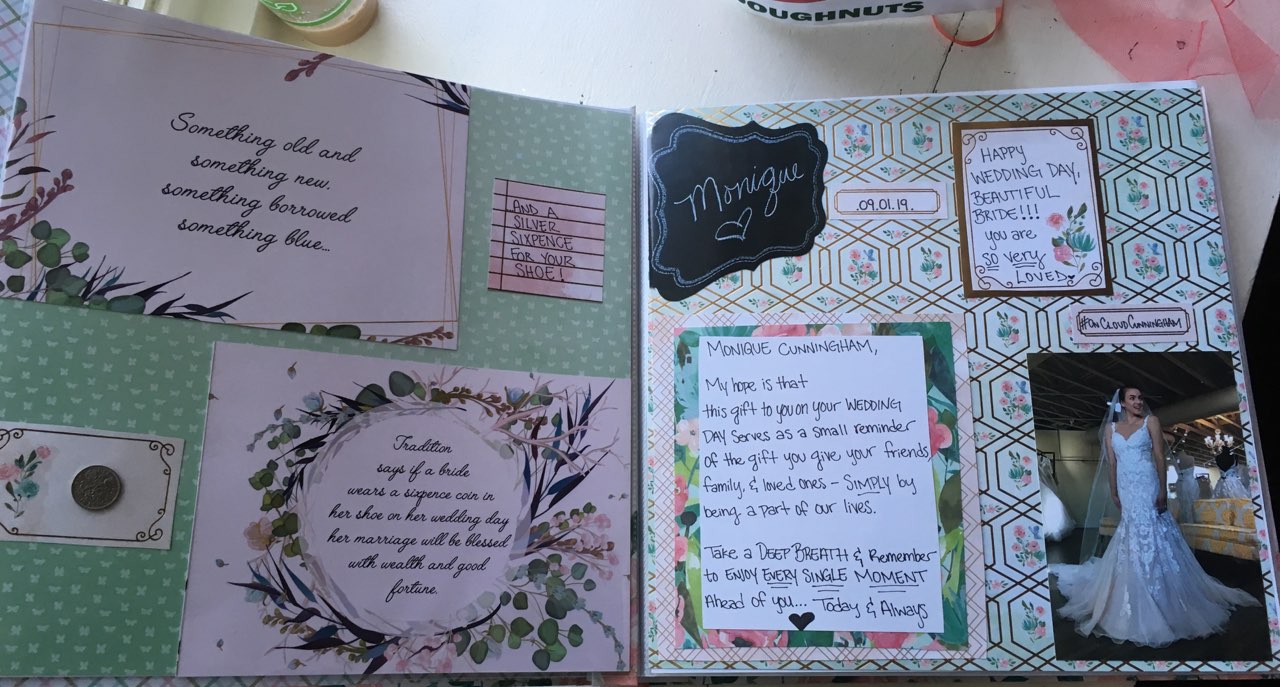 DOUGHNUTS
Something old and
something new.
something borrowed
something blue...
AND A
SILVER
SIXPENCE
FOR YOUR
SHOE!
Tradition
says if a bride
wears a sixpence coin in
her shoe on her wedding day
her marriage will be blessed
with wealth and good
fortune.
Monique
09.01.19.
HAPPY
WEDDING DAY,
BEAUTIFUL
BRIDE!!!
you are
so very
LOVED
#OnCloudCunningham
MONIQUE CUNNINGHAM,
My hope is that
this gift to you on your WEDDING
DAY serves as a small reminder
of the gift you give your friends,
family, & loved ones – SIMPLY by
being a part of our lives.
Take a DEEP BREATH & Remember
to ENJOY EVERY SINGLE MOMENT
Ahead of you... Today & Always